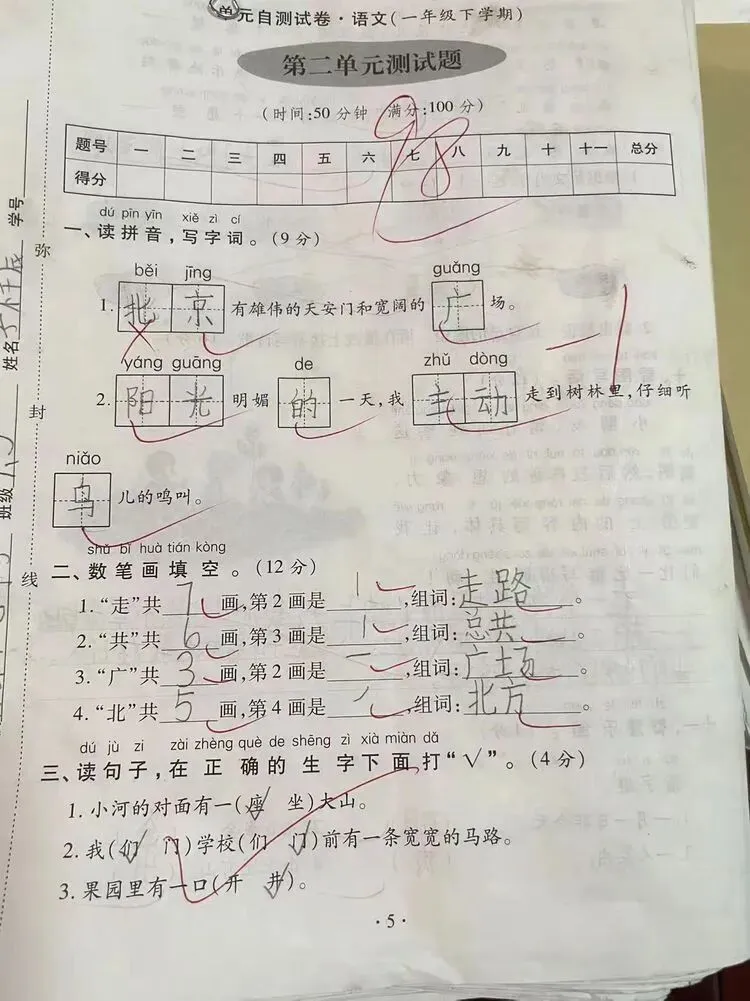 单元自测试卷·语文(一年级下学期)
第二单元测试题
(时间:50分钟 满分:100分)
98
题号 一 二 三 四 五 六 七 八 九 十 十一 总分
得分
dú pīn yīn xiě zì cí
一、读拼音,写字词。(9分)
běi jīng guǎng
1. 北京 有雄伟的天安门和宽阔的 广 场。
-1
yáng guāng de zhǔ dòng
2. 阳光 明媚 的 一天,我 主动 走到树林里,仔细听
niǎo
鸟 儿的鸣叫。
shǔ bǐ huà tián kòng
二、数笔画填空。(12分)
1.“走”共 7 画,第2画是 丨 ,组词: 走路 。
2.“共”共 6 画,第3画是 丨 ,组词: 总共 。
3.“广”共 3 画,第2画是 一 ,组词: 广场 。
4.“北”共 5 画,第4画是 丿 ,组词: 北方 。
dú jù zi zài zhèng què de shēng zì xià miàn dǎ
三、读句子,在正确的生字下面打“√”。(4分)
1. 小河的对面有一(座 坐)大山。
2. 我(们 门)学校(们 门)前有一条宽宽的马路。
3. 果园里有一口(开 井)。
·5·
学号
姓名
班级
弥
封
线